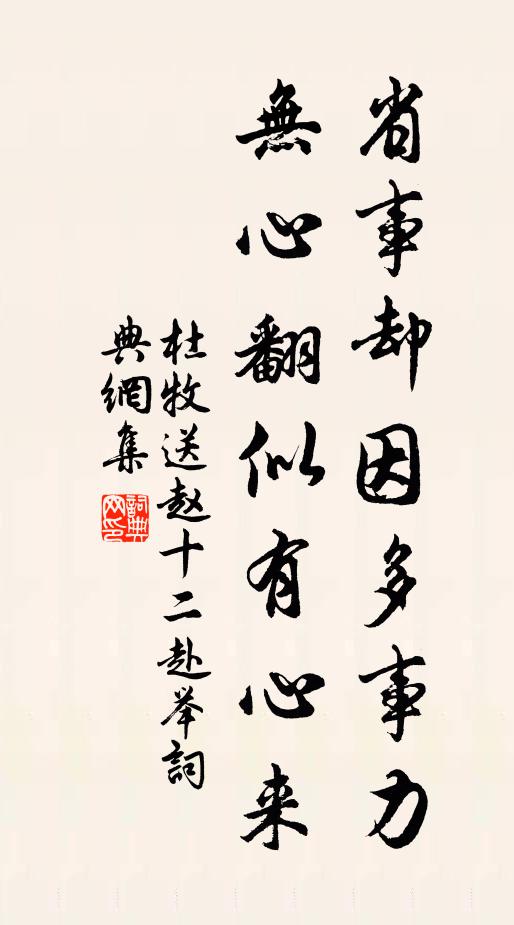 省事却因多事力
無心翻似有心来
杜牧送赵十二赴举詞
典網集
詞典網印